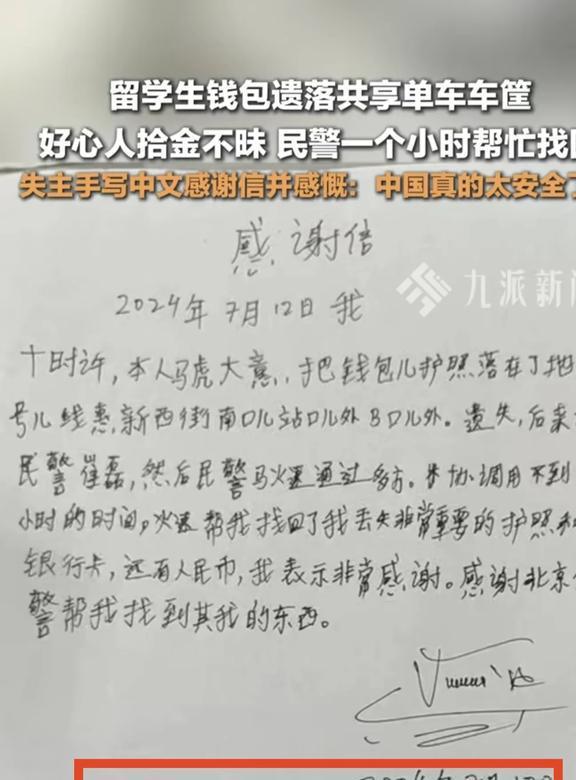 留学生钱包遗落共享单车车筐
好心人拾金不昧 民警一个小时帮忙找回
失主手写中文感谢信并感慨：中国真的太安全了
感谢信
九派新闻
2024年7月12日 我
十时许，本人马虎大意，把钱包儿护照落在了地
号儿线惠新西街南口儿站口儿外B口儿外。遗失，后来
民警崔磊，然后民警马火速通过多方。协调用不到
小时的时间，火速帮我找回了我丢失非常重要的护照和
银行卡，还有人民币，我表示非常感谢。感谢北京
警帮我找到其我的东西。